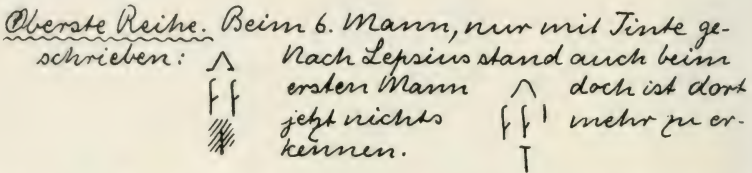 Oberste Reihe. Beim 6. Mann, nur mit Tinte ge-
schrieben: Nach Lepsius stand auch beim
ersten Mann doch ist dort
jetzt nichts mehr zu er-
kennen.